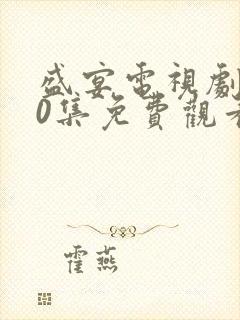 盛宴電視劇
0集免費觀看
霍燕